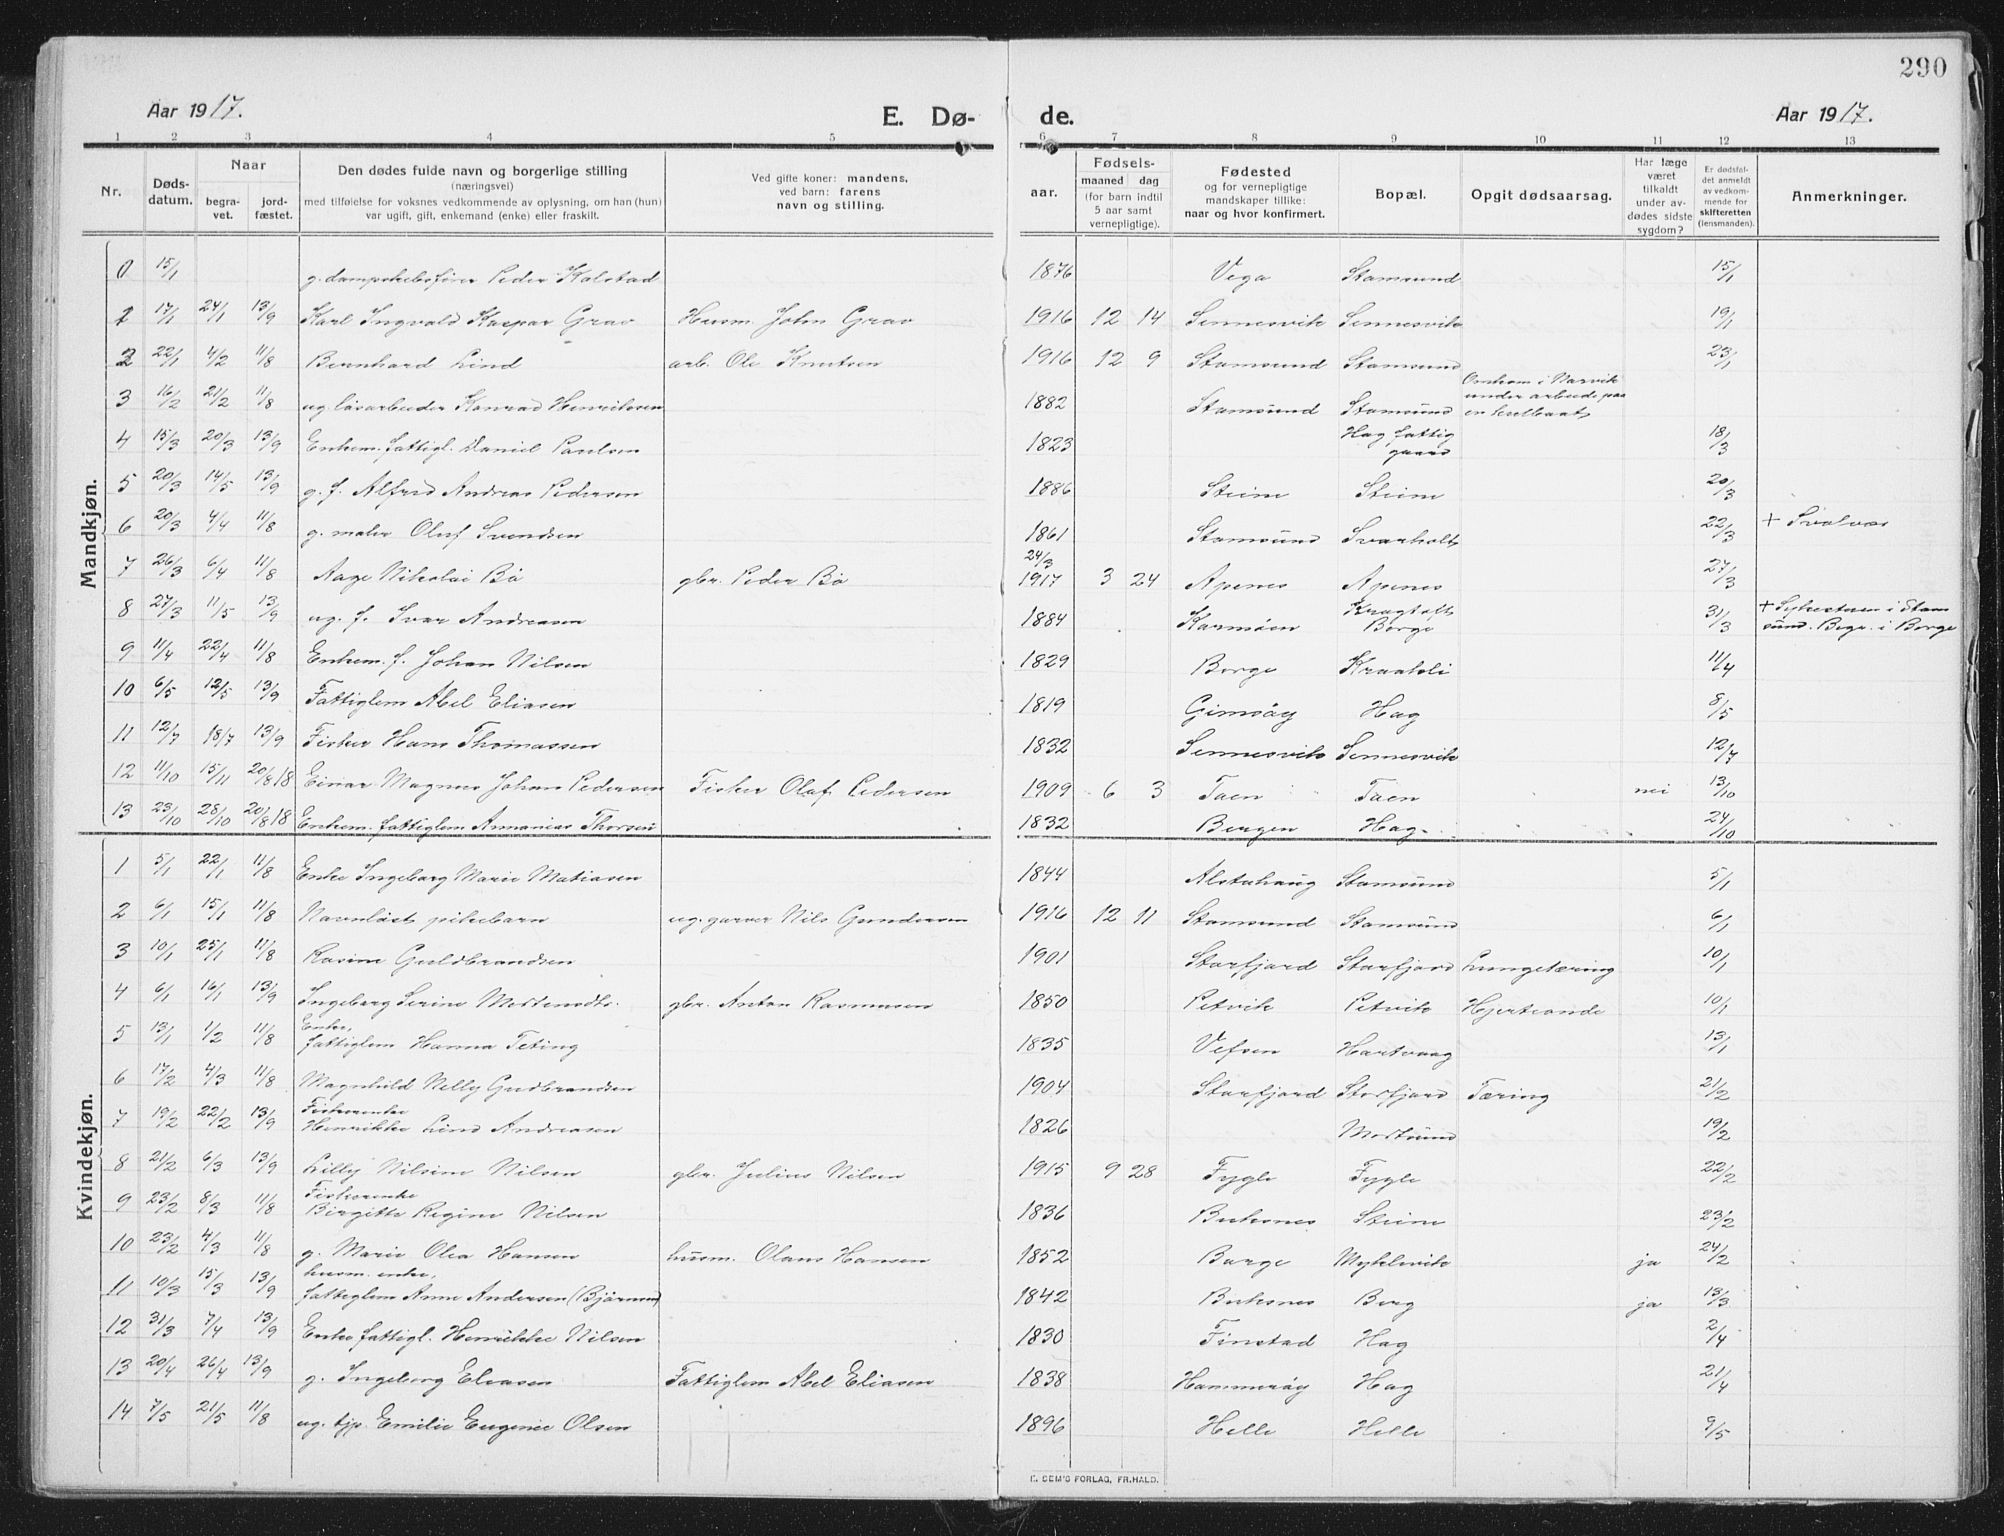 290
Aar 1917.
E. Dø-
de.
Aar 1917.
1 2 3 4 5 6 7 8 9 10 11 12 13
Nr.
Døds-
datum.
Naar
begra-
vet.
jord-
fæstet.
Den dødes fulde navn og borgerlige stilling
(næringsvei)
med tilføielse for voksnes vedkommende av oplysning, om han (hun)
var ugift, gift, enkemand (enke) eller fraskilt.
Ved gifte koner: mandens,
ved barn: farens
navn og stilling.
aar.
Fødsels-
maaned dag
(for barn indtil
5 aar samt
vernepligtige).
Fødested
og for vernepligtige
mandskaper tillike:
naar og hvor konfirmert.
Bopæl.
Opgit dødsaarsag.
Har læge
været
tilkaldt
under av-
dødes sidste
sygdom?
Er dødsfal-
det anmeldt
av vedkom-
mende for
skifteretten
(lensmanden).
Anmerkninger.
Mandkjøn.
0 15/1 g. dampskibsfører Peder Kalstad 1876 Vega Stamsund 15/1
1 17/1 24/1 13/9 Karl Ingvald Kaspar Grav Husm. John Grav 1916 12 14 Sennesvik Sennesvik 19/1
2 22/1 4/2 11/8 Bernhard Lind arb. Ole Knutsen 1916 12 9 Stamsund Stamsund 23/1
3 16/2 21/2 11/8 ug. løsarbeider Konrad Henriksen 1882 Stamsund Stamsund Omkom i Narvik
under arbeide paa
en lselbaat
4 15/3 20/3 13/9 Enkem. fattigl. Daniel Paulsen 1823 Hag fattig
gaard 18/3
5 20/3 14/5 13/9 g. f. Alfred Andreas Pedersen 1886 Steine Steine 20/3
6 20/3 4/4 11/8 g. maler Oluf Svendsen 1861 Stamsund Svarholt 22/3 + Svolvær
7 26/3 6/4 11/8 Aage Nikolai Bø gbr. Peder Bø 24/3
1917 3 24 Apenes Apenes 27/3
8 27/3 11/5 13/9 ug. f. Ivar Andreasen 1884 Karmöen Kragtoft
Borge 31/3 + Sykestuen i Stam
sund. Begr. i Borge
9 11/4 22/4 11/8 Enkem. f. Johan Nilsen 1829 Borge Kraakli 11/4
10 6/5 12/5 13/9 Fattiglem Abel Eliasen 1819 Gimsöy Hag 8/5
11 12/7 18/7 13/9 Fisker Hans Thomassen 1832 Sennesvik Sennesvik 12/7
12 11/10 15/11 20/8 18 Einar Magnus Johan Pedersen Fisker Olaf Pedersen 1909 6 3 Taen Taen nei 13/10
13 23/10 28/10 20/8 18 Enkem. fattiglem Annanias Thorsen 1832 Bergen Hag 24/10
Kvindekjøn.
1 5/1 22/1 11/8 Enke Ingeborg Marie Matiasen 1844 Alstahaug Stamsund 5/1
2 6/1 15/1 11/8 Navnløst pikebarn ug. garver Nils Gundersen 1916 12 11 Stamsund Stamsund 6/1
3 10/1 25/1 11/8 Rasine Guldbrandsen 1901 Storfjord Storfjord Lungetæring 10/1
4 6/1 16/1 13/9 Ingeborg Serine Mortensdtr. gbr. Anton Rasmusen 1850 Petvik Petvik Hjerteonde 10/1
5 13/1 1/2 11/8 Enke,
fattiglem Hanna Teting 1835 Vefsen Hartvaag 13/1
6 17/2 4/3 11/8 Magnhild Nelly Gudbrandsen 1904 Storfjord Storfjord Tæring 21/2
7 19/2 22/2 13/9 Fiskerenke
Henrikke Lind Andreasen 1826 Mortsund 19/2
8 21/2 6/3 13/9 Lilly Nilsine Nilsen gbr. Julius Nilsen 1915 9 28 Fygle Fygle 22/2
9 23/2 8/3 11/8 Fiskerenke
Birgitte Regine Nilsen 1836 Buksnes Steine 23/2
10 23/2 4/3 11/8 g. Marie Olea Hansen husm. Olaus Hansen 1852 Borge Myklevik ja 24/2
11 10/3 15/3 13/9 husm. enke,
fattiglem Anne Andersen (Bjørnsen) 1842 Buksnes Berg ja 13/3
12 31/3 7/4 13/9 Enke fattigl. Henrikke Nilsen 1830 Finstad Hag 2/4
13 20/4 26/4 13/9 g. Ingeborg Eliasen Fattiglem Abel Eliasen 1838 Hammeröy Hag 21/4
14 7/5 21/5 11/8 ug. tjp. Emilie Eugenie Olsen 1896 Helle Helle 9/5
E. SEM'S FORLAG, FR.HALD.